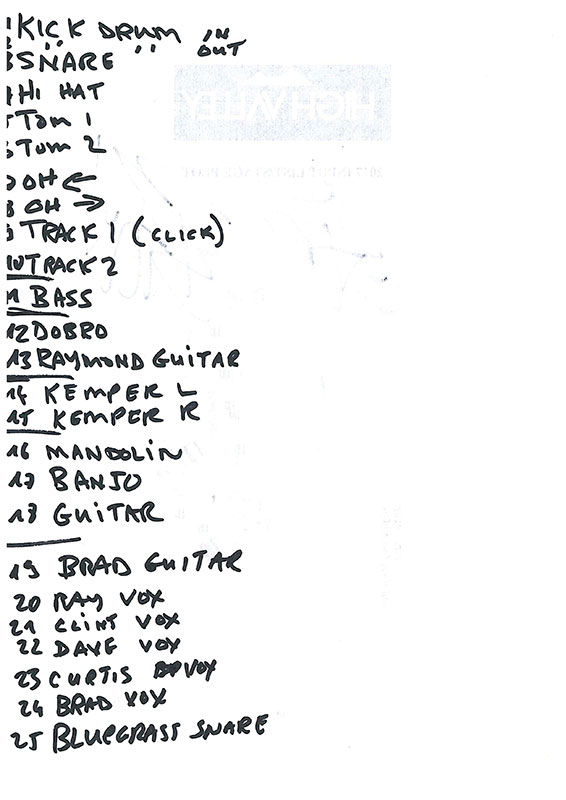 1 KICK DRUM IN
2 '' '' OUT
3 SNARE
4 HI HAT
5 TOM 1
6 TOM 2
7 OH ←
8 OH →
9 TRACK 1 (CLICK)
10 TRACK 2
11 BASS
12 DOBRO
13 RAYMOND GUITAR
14 KEMPER L
15 KEMPER R
16 MANDOLIN
17 BANJO
18 GUITAR
19 BRAD GUITAR
20 RAY VOX
21 CLINT VOX
22 DAVE VOX
23 CURTIS VOX
24 BRAD VOX
25 BLUEGRASS SNARE
HIGH VALLEY